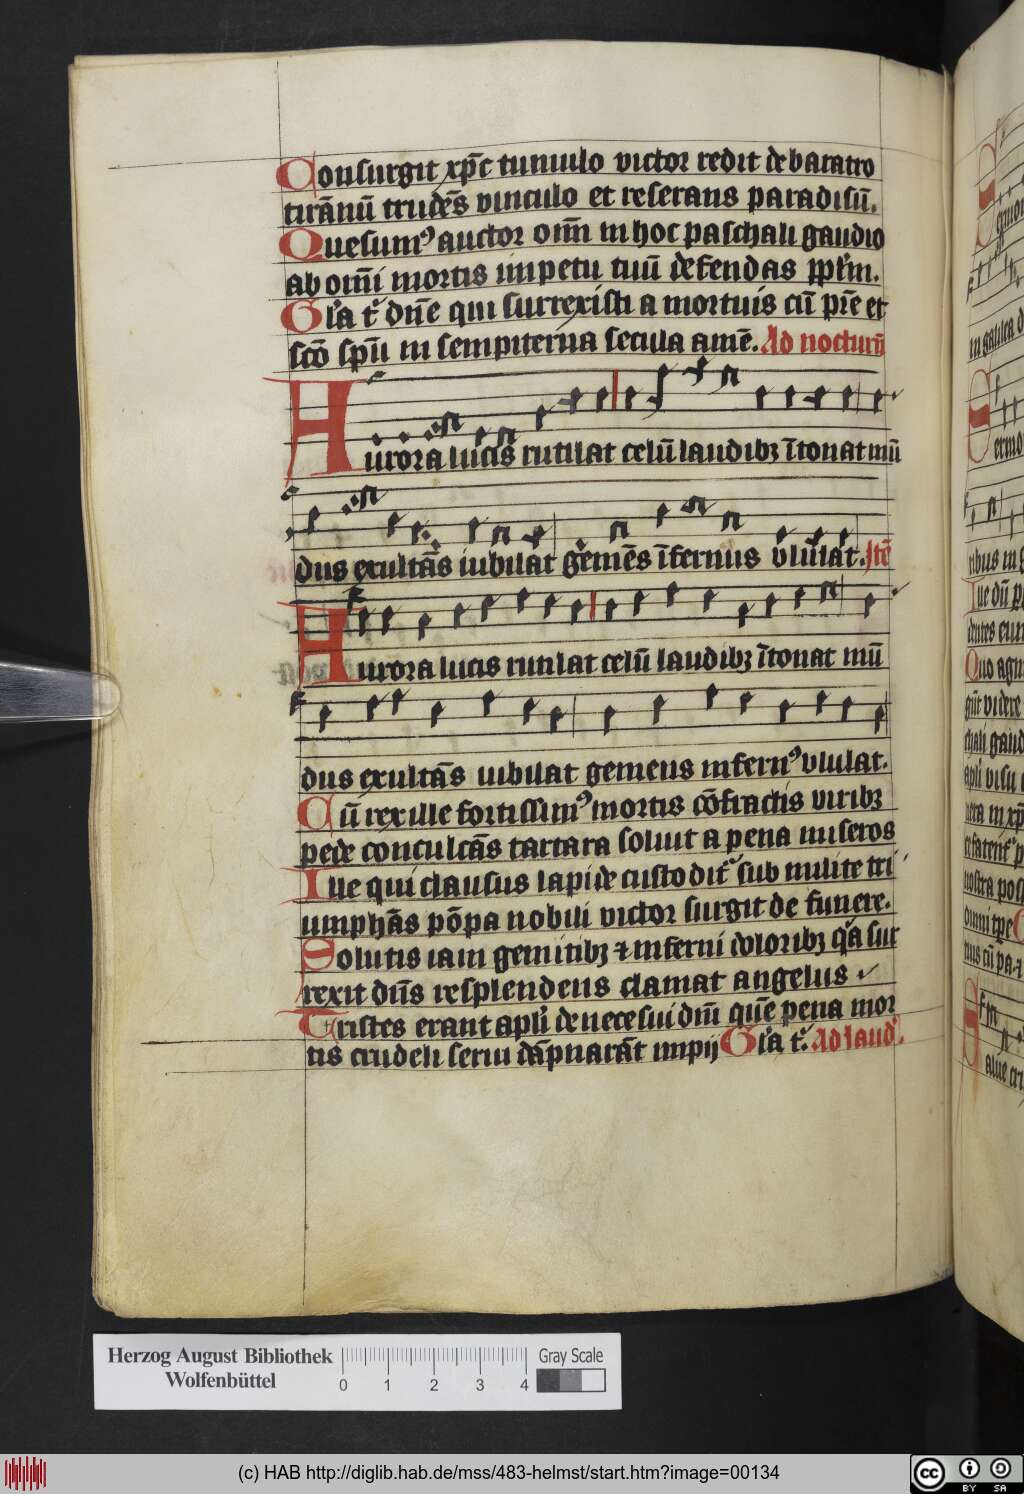 Consurgit xp̄c tumulo victor redit de baratro
tirānū trudēs vinculo et reserans paradisū.
Quesumꝰ auctor om̄ in hoc paschali gaudio
ab om̄i mortis impetu tuū defendas pplm̄.
Gl̄a t͛ dn̄e qui surrexisti a mortuis cū pr̄e et
sc̄o sp̄u in sempiterna secula amē. Ad nocturū
Aurora lucis rutilat celū laudibꝫ ītonat mū
dus exultās iubilat gēmēs īfernus vlulat. Itē
Aurora lucis rutilat celū laudibꝫ ītonat mū
dus exultās iubilat gemens infernꝰ vlulat.
Cū rex ille fortissimꝰ mortis cōfractis viribꝫ
pede conculcās tartara soluit a pena miseros
Ille qui clausus lapide custodit͛ sub milite tri
umphās pōpa nobili victor surgit de funere.
Solutis iam gemitibꝫ ⁊ inferni doloribꝫ qa sur
rexit dn̄s resplendens clamat angelus
Tristes erant apli de nece sui dn̄i quē pena mor
tis crudeli serui dāpnarāt impij Gl̄a t͛. Ad laud͛.
Herzog August Bibliothek
Wolfenbüttel
Gray Scale
0 1 2 3 4
(c) HAB http://diglib.hab.de/mss/483-helmst/start.htm?image=00134
cc BY SA